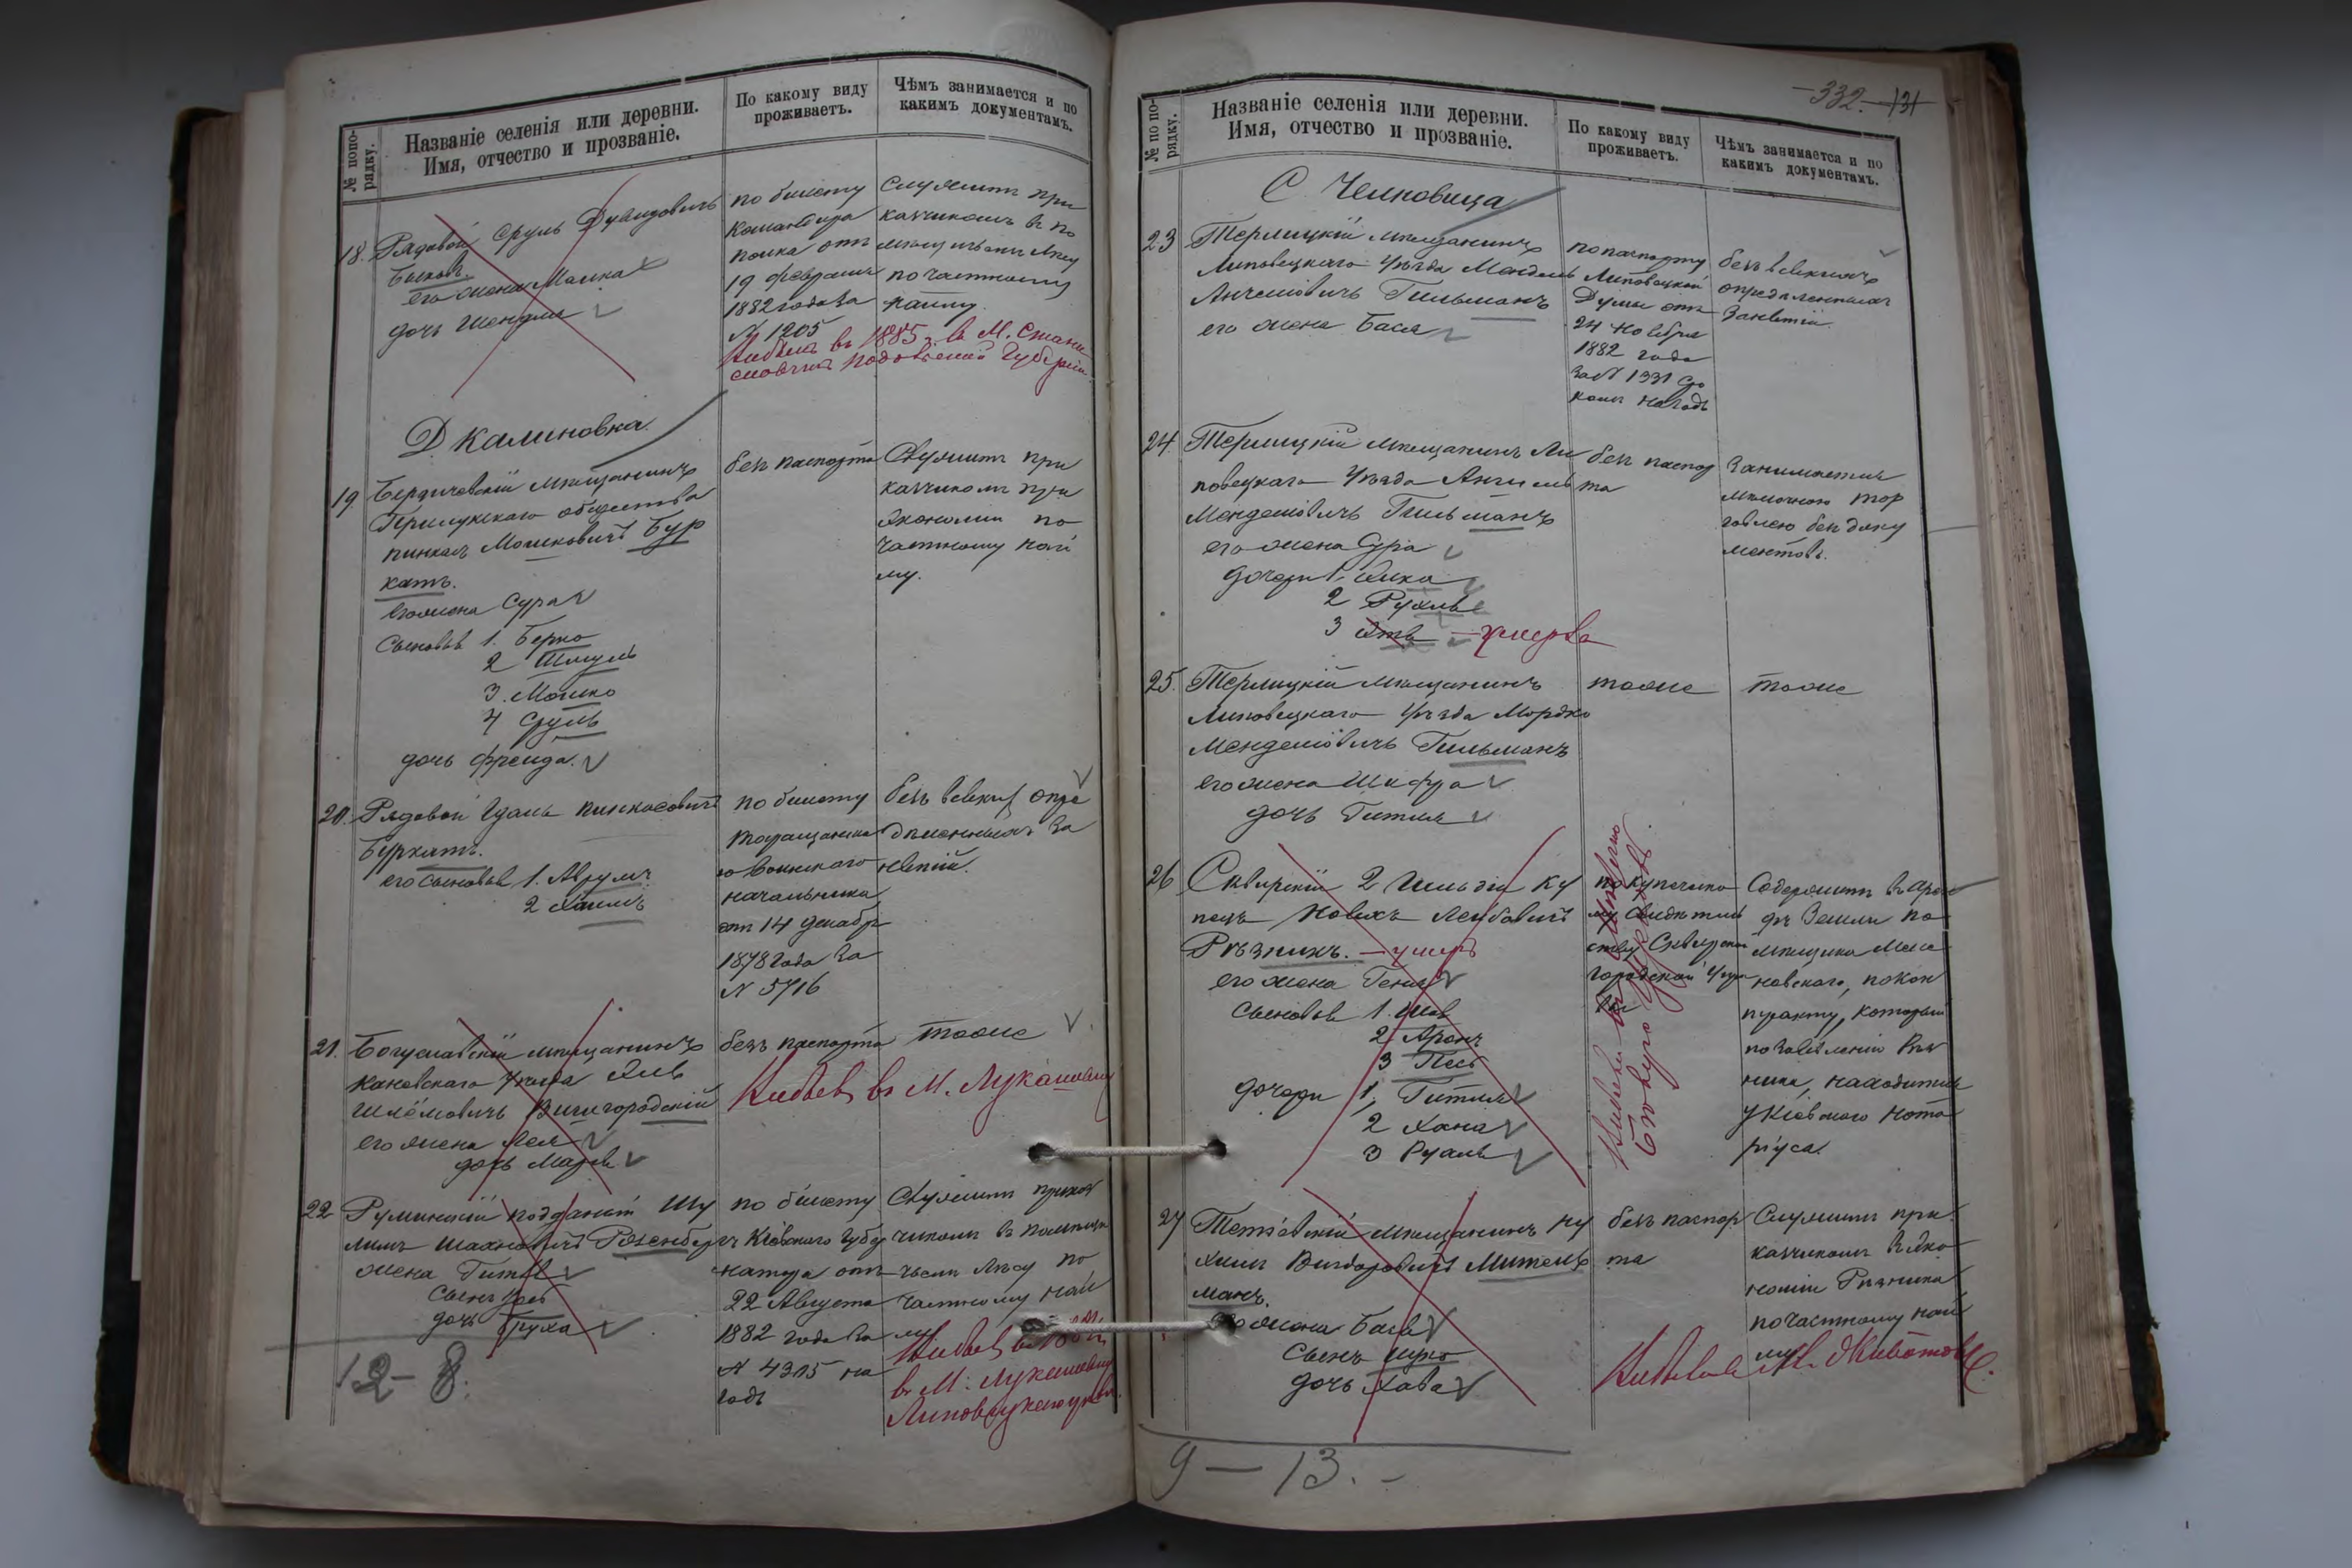 № по по-
рядку.
Названіе селенія или деревни.
Имя, отчество и прозваніе.
По какому виду
проживаетъ.
Чѣмъ занимается и по
какимъ документамъ.
18. Рядовой Сруль Дувидовичъ
Быковъ.
его жена Малка
дочь Шендля
по билету
командира
полка отъ
19 февраля
1882 года за
№ 1205
Служитъ при
казчикомъ въ по
мѣщичьемъ лѣсу
по частному
найму.
Выбылъ въ 1885 г. въ М. Стани
славчикъ Подольской Губерніи.
Д. Калиновка.
19. Бердичевскій мѣщанинъ
Прилукскаго общества
Пинкасъ Мошковичъ Бур
катъ.
его жена Сура
Сыновья 1. Берко
2 Шмуль
3. Мошко
4 Сруль
дочь Фрейда.
безъ паспорта
Служитъ при
казчикомъ при
Экономіи по
частному най
му.
20. Рядовой Пинкасовичъ
Буркатъ.
его сыновья 1. Аврумъ
2 Хаимъ
по билету
Таращанска
го воинскаго
начальника
отъ 14 декабря
1878 года за
№ 5716
безъ всякихъ опре
дѣленныхъ за
нятій.
21. Богуславскій мѣщанинъ
Каневскаго уѣзда
Шлёмовичъ Вишгородскій
его жена Лея
дочь
безъ паспорта
тоже
Выбылъ въ М. Лукашовку
22 Румынскій подданный Шу
лимъ Шахновичъ Розенбергъ
жена Гитля
сынъ
дочь Бруха
по билету
Кіевскаго Губер
натора отъ
22 Августа
1882 года за
№ 4315 на
годъ
Служитъ приказ
чикомъ въ помѣщи
чьемъ лѣсу по
частному най
му
Выбылъ въ
въ М. Лукашовку
Липовецкаго уѣзда.
12 - 8.
- 332. - 131
№ по по-
рядку.
Названіе селенія или деревни.
Имя, отчество и прозваніе.
По какому виду
проживаетъ.
Чѣмъ занимается и по
какимъ документамъ.
С. Челновица
23 Терлицкій мѣщанинъ
Липовецкаго уѣзда Мендель
Анчеловичъ Гильманъ
его жена Бася
по паспорту
Липовецкой
Думы отъ
24 Ноября
1882 года
за № 1331 сро
комъ на годъ
безъ всякихъ
опредѣленныхъ
занятій.
24. Терлицкій мѣщанинъ Ли
повецкаго уѣзда Анчель
Менделовичъ Гильманъ
его жена Сура
дочери 1.
2 Рухля
3 — умерла
безъ паспор
та
Занимается
мѣлочною тор
говлею безъ доку
ментовъ.
25. Терлицкій мѣщанинъ
Липовецкаго уѣзда Мордко
Менделовичъ Гильманъ
его жена Шифра
дочь Гитля
тоже
тоже
26 Сквирскій 2 гильдіи ку
пецъ Лейбовичъ
Рѣзникъ. — умеръ
его жена Геня
Сыновья 1.
2 Аронъ
3
дочери 1, Гитля
2 Хана
3 Рухля
по купеческо
му свидѣтель
ству Сквирской
городской Упра
вы
Содержитъ въ арен
дѣ земли по
мѣщика
новскаго, по кон
тракту, который
по заявленію Рѣз
ника, находится
у Кіевскаго Нота
ріуса.
27 Тетіевскій мѣщанинъ Ну
химъ Вигдоровичъ Митель
манъ.
его жена Бася
Сынъ
дочь Хава
безъ паспор
та
Служитъ при
казчикомъ въ эко
номіи Рѣзника
по частному най
му
Выбыли М. Животовъ.
9 — 13. -